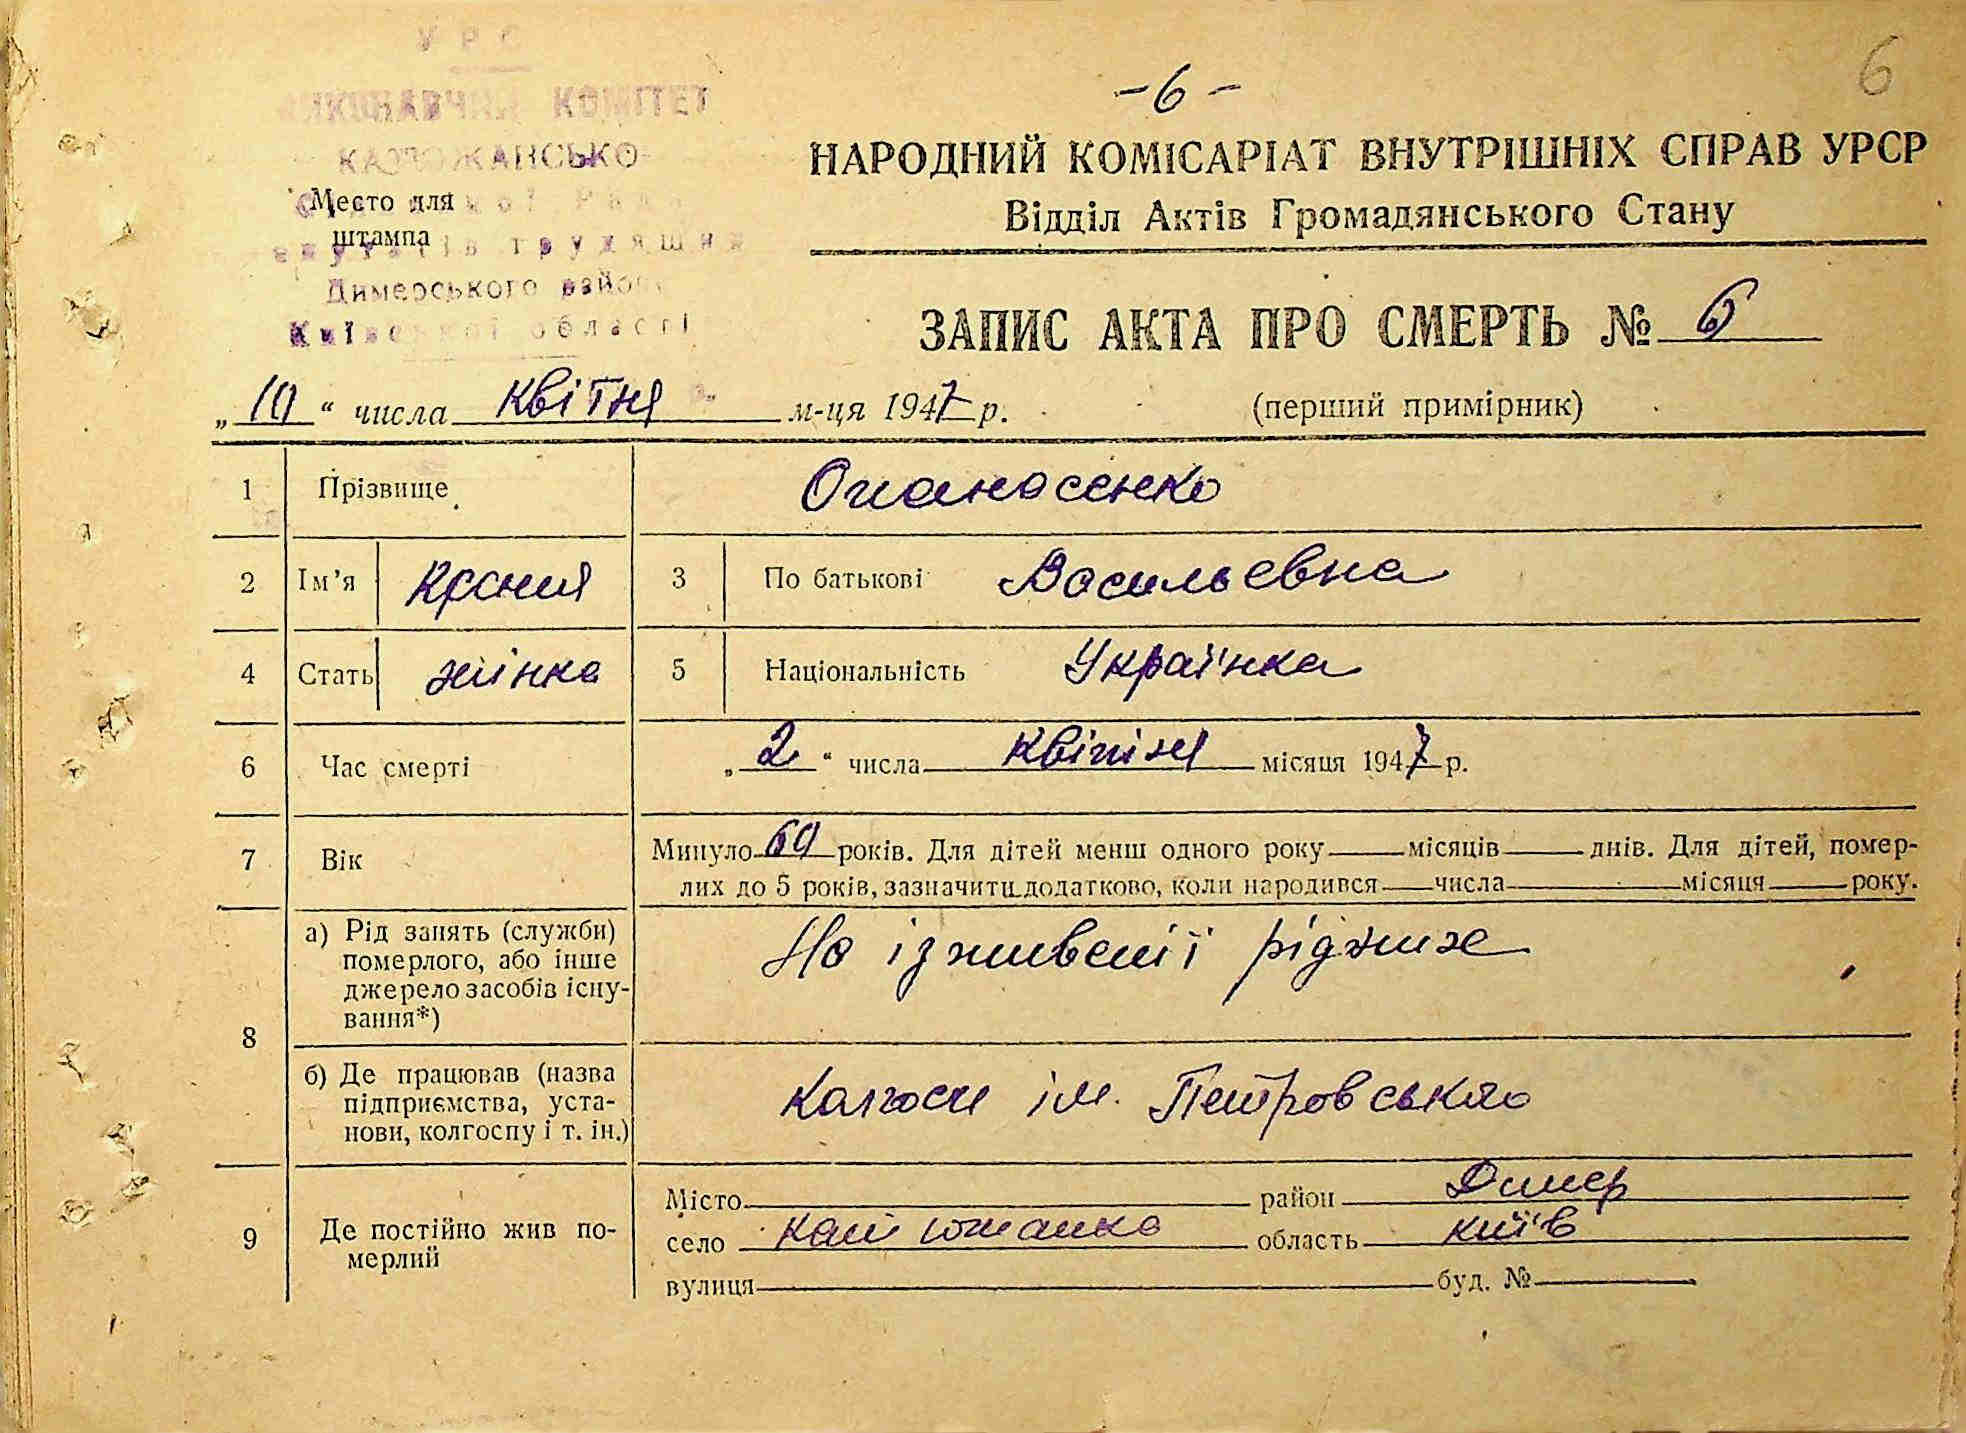 - 6 -
6
У Р С
ВИКОНАВЧИЙ КОМІТЕТ
КАТЮЖАНСЬКО
Место для
штампа
трудящих
Димерського району
Київської області
НАРОДНИЙ КОМІСАРІАТ ВНУТРІШНІХ СПРАВ УРСР
Відділ Актів Громадянського Стану
ЗАПИС АКТА ПРО СМЕРТЬ № 6
„10“ числа квітня м-ця 1947 р. (перший примірник)
1 Прізвище Опанасенко
2 Ім’я Ксения 3 По батькові Васильевна
4 Стать жінка 5 Національність Українка
6 Час смерті „2“ числа квітня місяця 1947 р.
7 Вік Минуло 60 років. Для дітей менш одного року місяців днів. Для дітей, помер-
лих до 5 років, зазначити додатково, коли народився числа місяця року.
8 а) Рід занять (служби)
померлого, або інше
джерело засобів існу-
вання*)
На іздивенії рідних
б) Де працював (назва
підприємства, уста-
нови, колгоспу і т. ін.)
Колгосп ім. Петровського
9 Де постійно жив по-
мерлий
Місто район Димер
село Катюжанка область Київ
вулиця буд. №